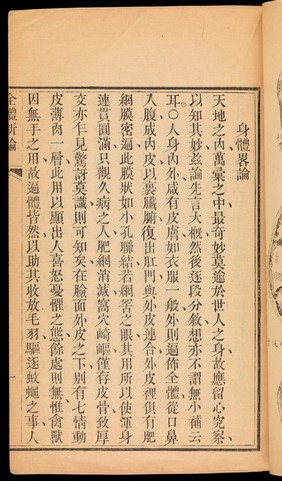 身體畧論
天地之內萬彙之中最奇妙莫逾於世人之身故應留心究察
以知其妙茲論先言大概然後逐段分敘想亦不謂無小補云
耳○人身內外咸有皮膚如衣服一般外則遍佈全體從口鼻
入腹成內皮以裹臟腑復出肛門與外皮連合外皮裡俱有肥
網膜密遍此膜狀如小孔聯結若網罟之眼其用所以使渾身
連貫圓滿只觀久病之人肥網消減窩穴崎嶇僅存皮骨致厚
交亦乍見驚訝莫識則可知矣在臉面外皮之下別有七情動
皮薄肉一層此用以顯出人喜怒憂懼之態餘處則無惟禽獸
因無手之用故遍體皆然以助其收放毛羽驅逐蚊蠅之事人
全體新論